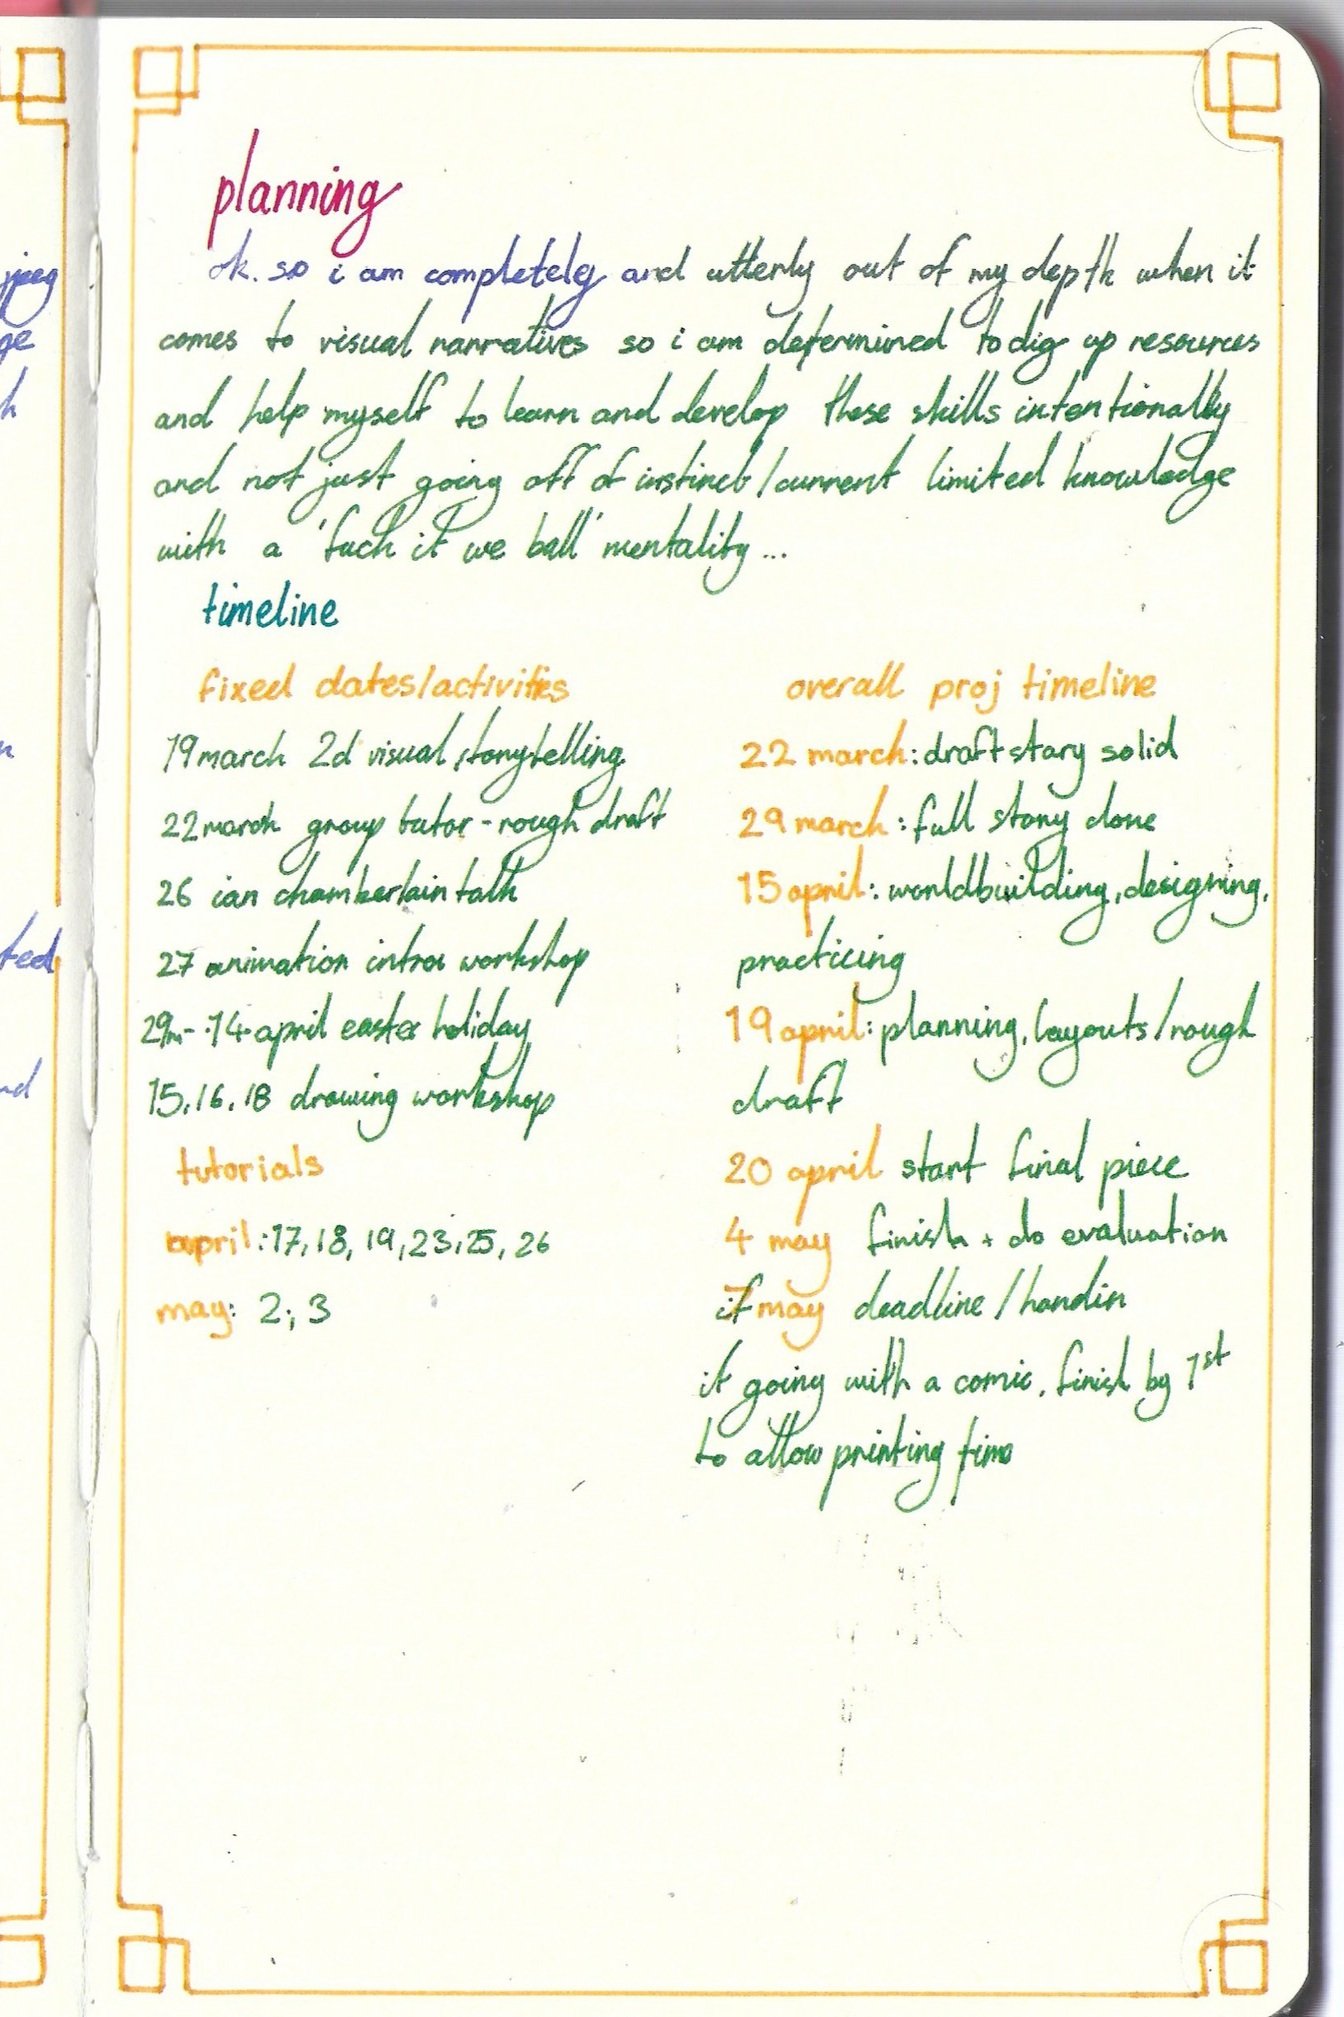 planning
ok. so i am completely and utterly out of my depth when it
comes to visual narratives so i am determined to dig up resources
and help myself to learn and develop these skills intentionally
and not just going off of instinct/current limited knowledge
with a 'fuck it we ball' mentality...
timeline
fixed dates/activities
19 march 2d visual storytelling
22 march group tutor - rough draft
26 ian chamberlain talk
27 animation intro workshop
29m - 14 april easter holiday
15, 16, 18 drawing workshop
tutorials
april: 17, 18, 19, 23, 25, 26
may: 2, 3
overall proj timeline
22 march: draft story solid
29 march: full story done
15 april: worldbuilding, designing,
practicing
19 april: planning, layouts/rough
draft
20 april start final piece
4 may finish + do evaluation
7 may deadline/handin
if going with a comic, finish by 1st
to allow printing time
jpeg
ge
h
n
ted
nd